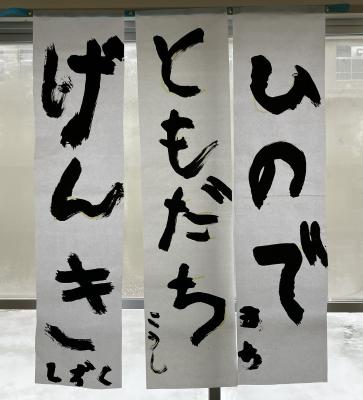 ひので
ともだち
こうし
げんき
しずく